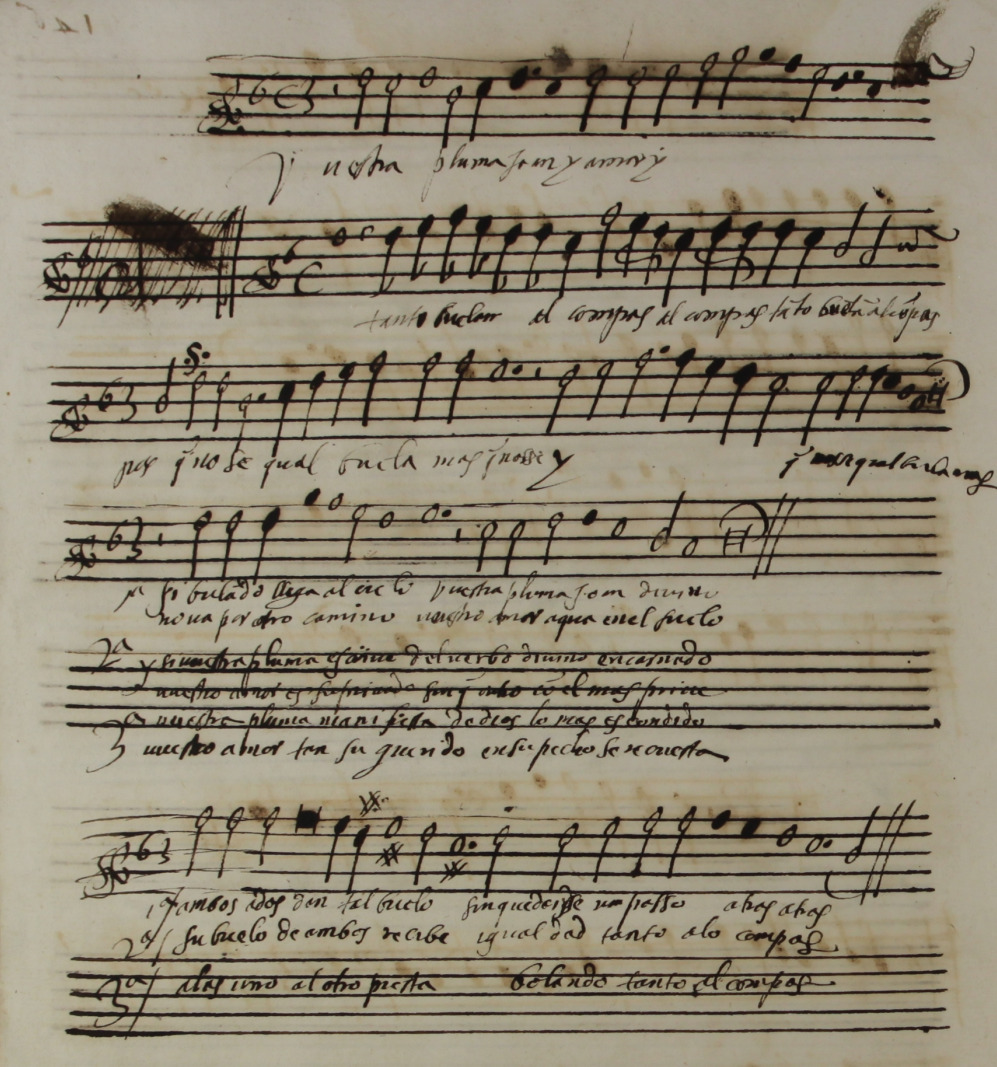 Vuestra pluma Joan y amor y
tanto buelan al compas al compas tãto buelã al cõpas
pas q̃ no se qual buela mas q̃ nosse y q̃ nose qual buela mas
1ª si bulãdo llega al cielo vuestra pluma Joan divino
no va por otro camino nuestro amor aqua en el suelo
2ª y si vuestra pluma escrive del verbo divino encarnado
nuestro amor es su privado sin q̃ otro cõ el mas prive
3ª vuestra pluma manifiesta de dios lo mas escondido
nuestro amor tan su querido en su pecho se recuesta
1ª ambos a dos dan tal buelo sin quedarse un passo atras atras
2ª su buelo de ambos recibe igualdad tanto a lo compas
3ª alas uno al otro presta bolando tanto al compas